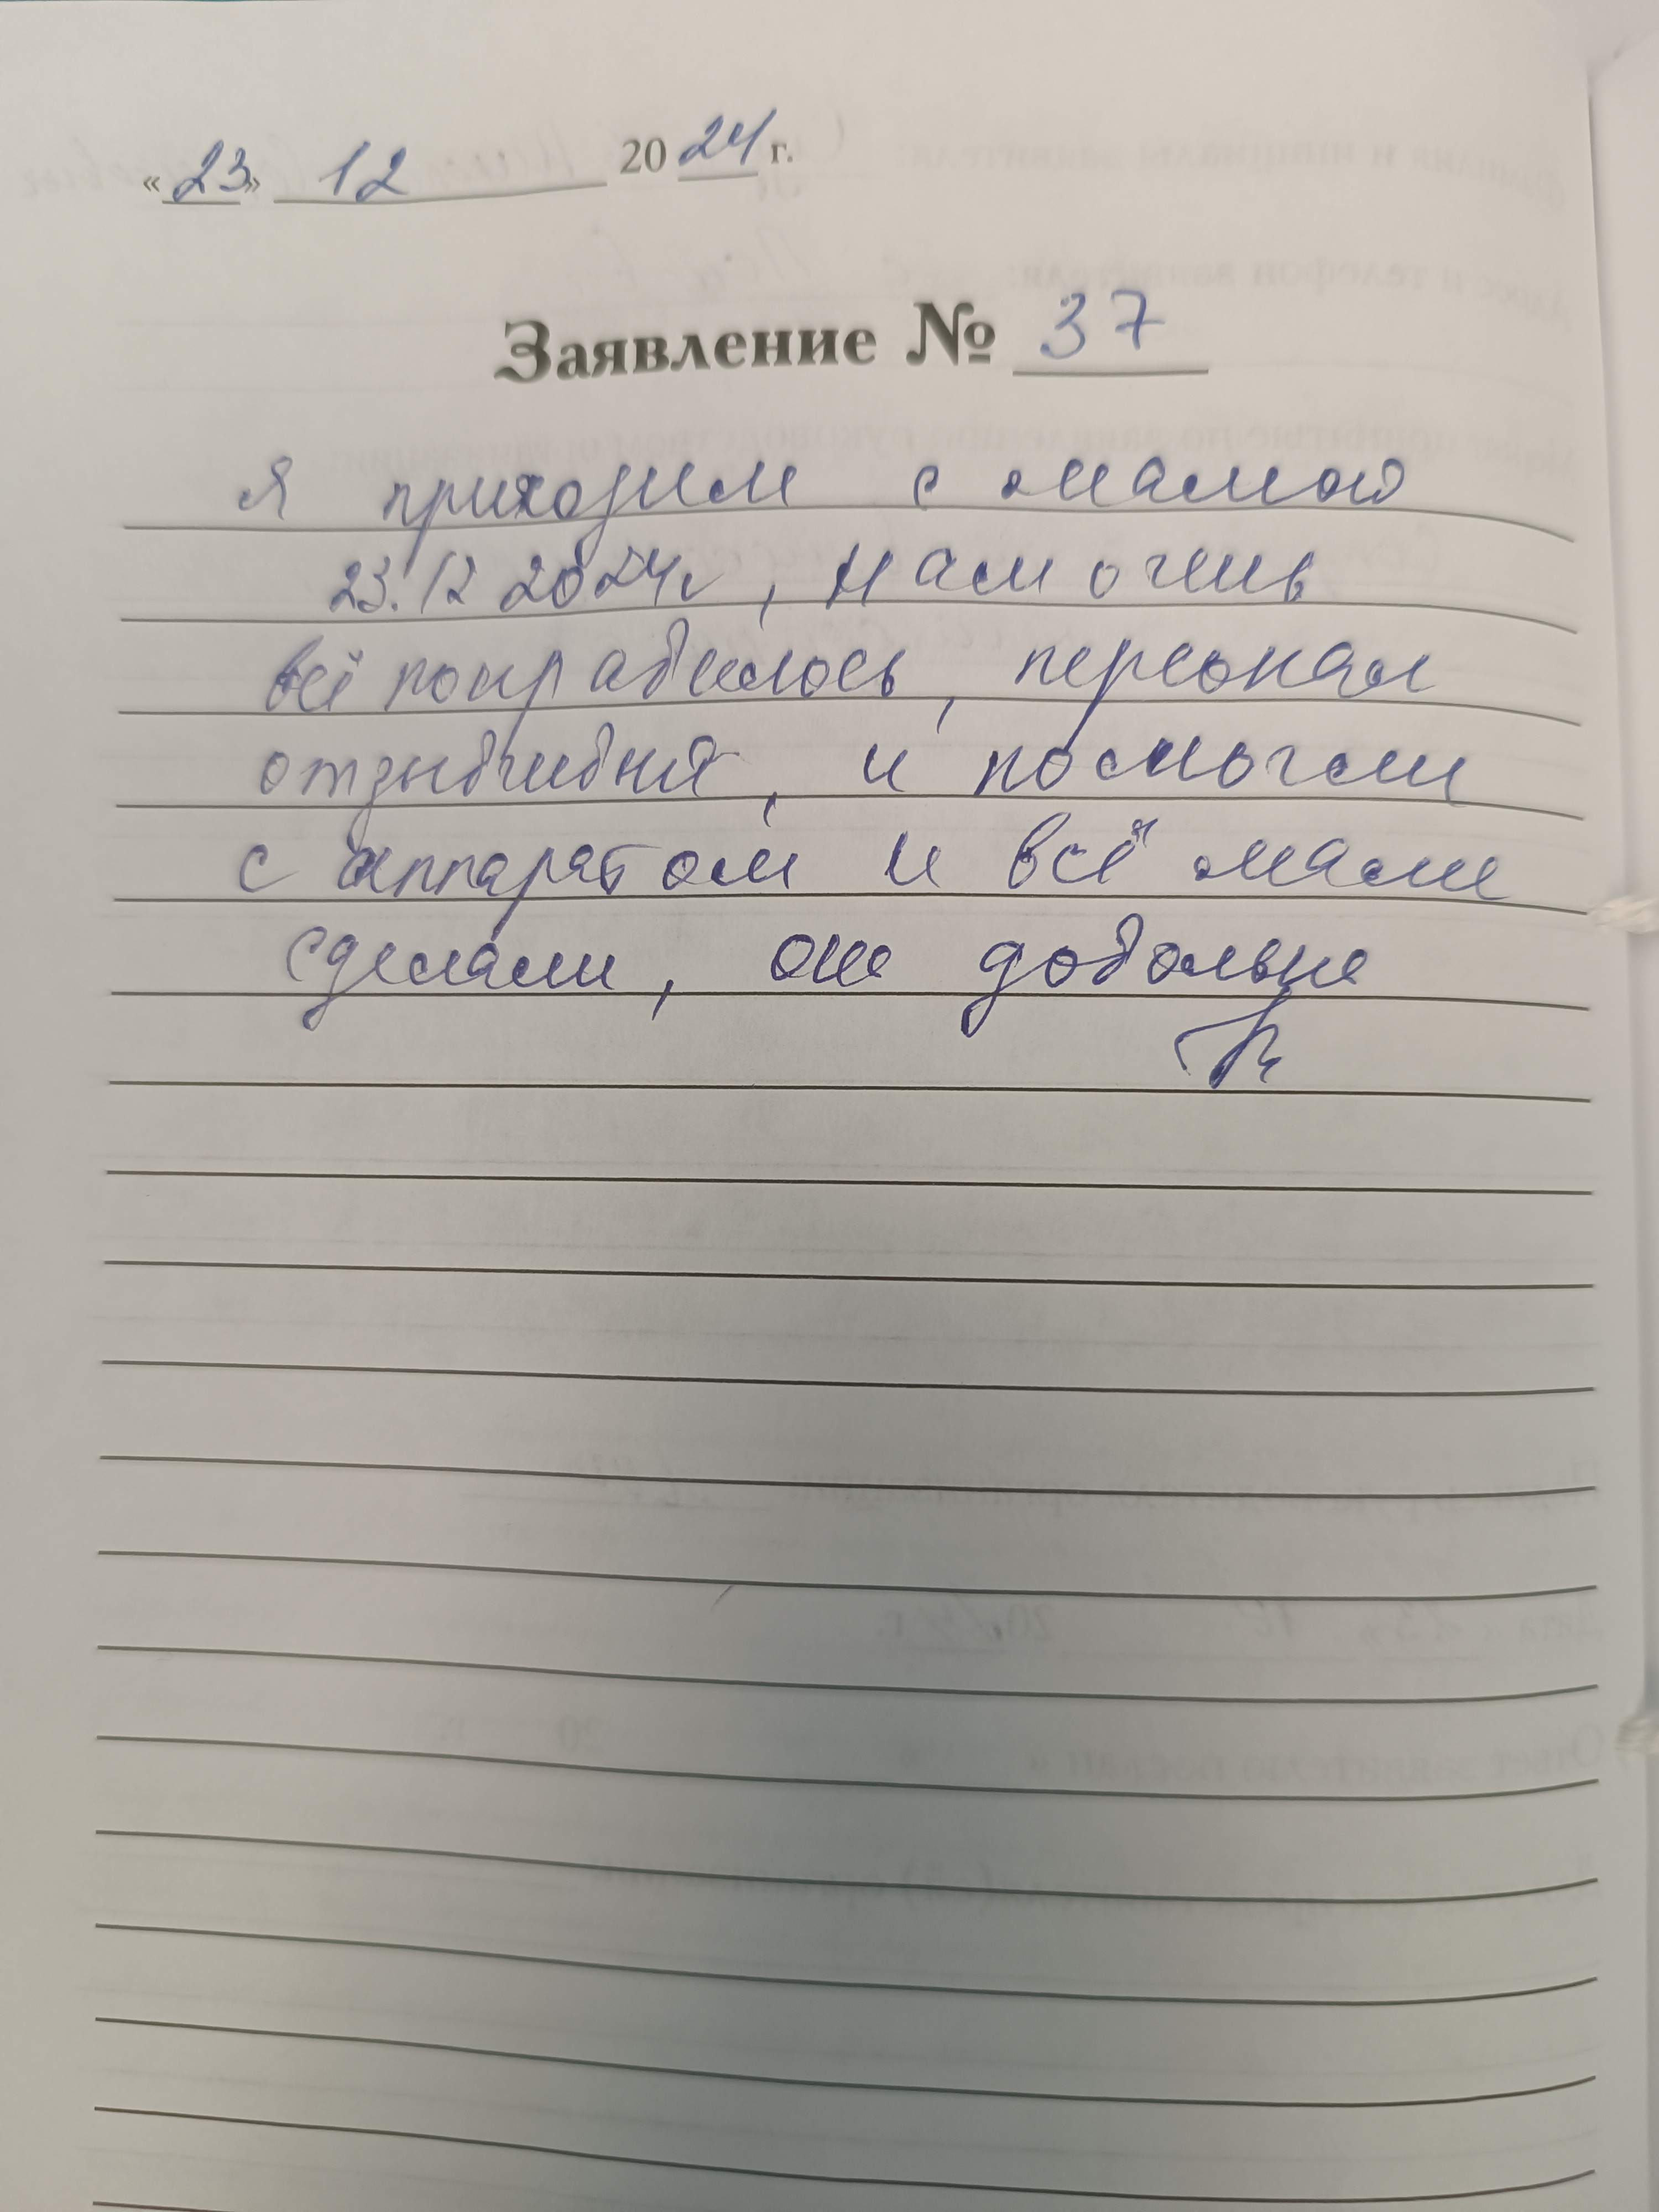 «23» 12 2024 г.
Заявление № 37
Я приходил с мамой
23.12 2024г, нам очень
всё понравилось, персонал
отзывчивый, и помогли
с аппаратом и всё маме
сделали, она довольна